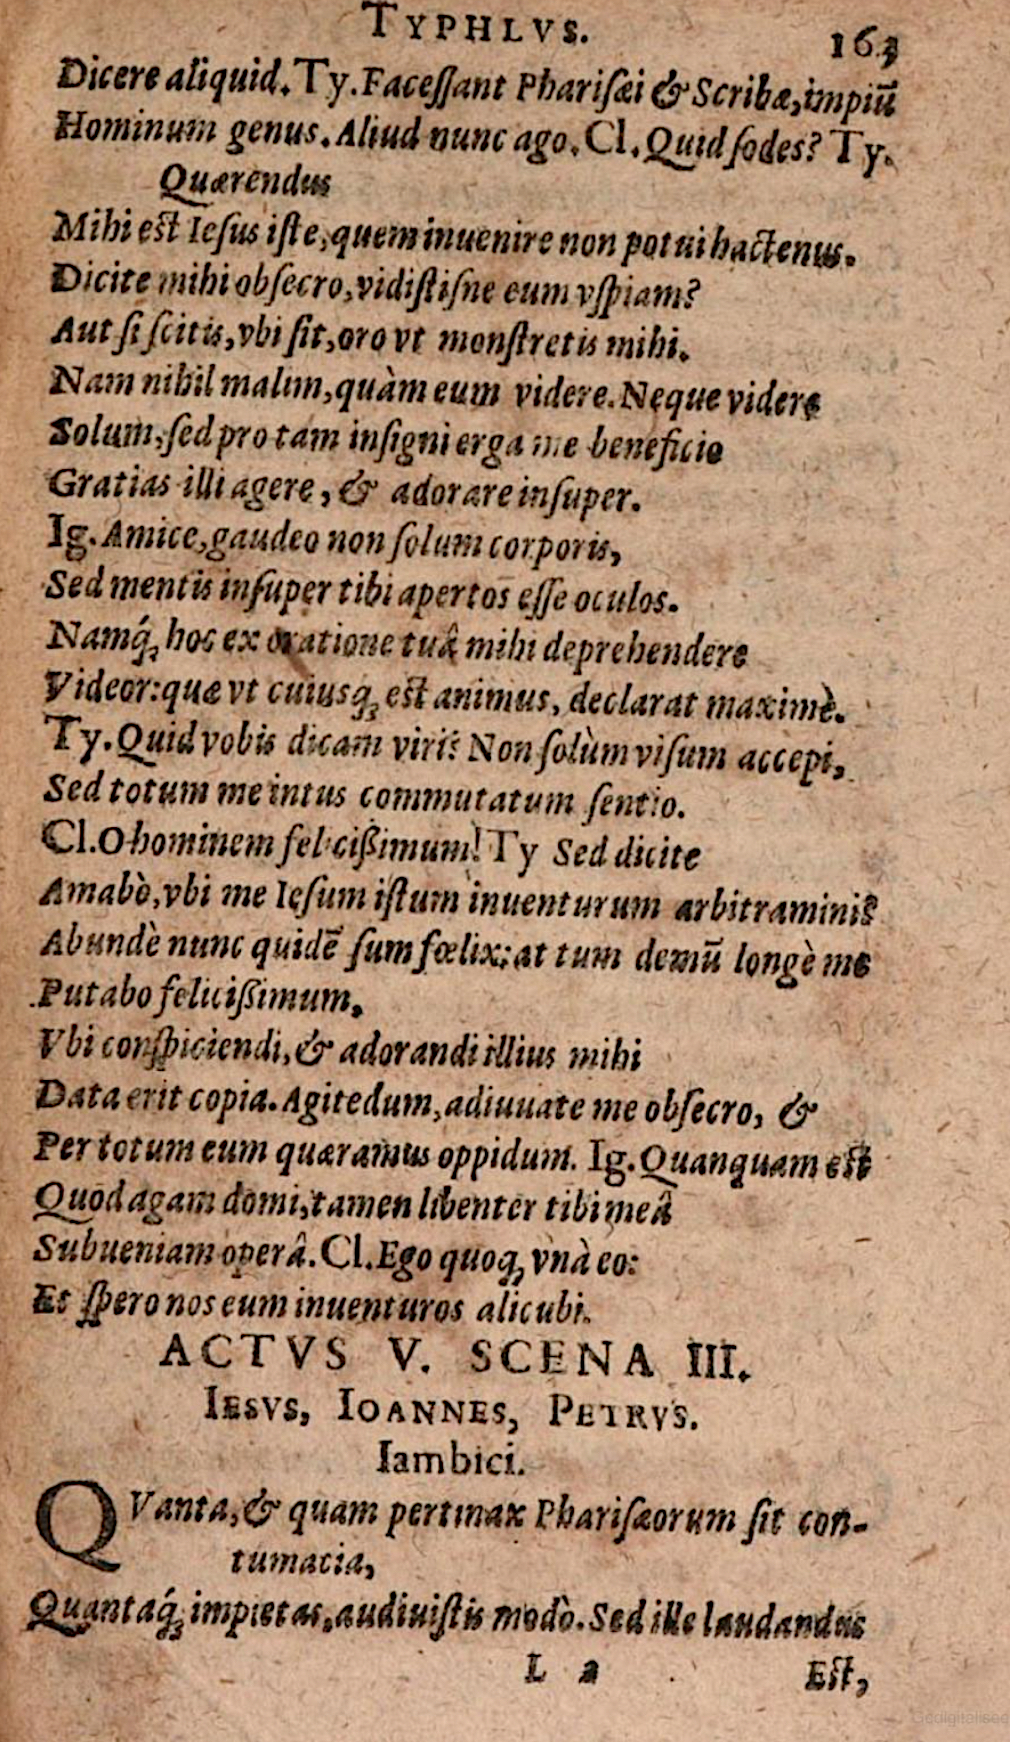 TYPHLVS. 163
Dicere aliquid. Ty. Faceſſant Phariſæi & Scribæ, impiũ
Hominum genus. Aliud nunc ago. Cl. Quid ſodes? Ty.
Quærendus
Mihi eſt Ieſus iſte, quem inuenire non potui hactenus.
Dicite mihi obſecro, vidiſtiſne eum vſpiam?
Aut ſi ſcitis, vbi ſit, oro vt monſtretis mihi.
Nam nihil malim, quàm eum videre. Neque videre
Solum, ſed pro tam inſigni erga me beneficio
Gratias illi agere, & adorare inſuper.
Ig. Amice, gaudeo non ſolum corporis,
Sed mentis inſuper tibi apertos eſſe oculos.
Namq́ꝫ hoc ex oratione tuâ mihi deprehendere
Videor: quæ vt cuiusqꝫ eſt animus, declarat maximè.
Ty. Quid vobis dicam viri? Non ſolùm viſum accepi,
Sed totum me intus commutatum ſentio.
Cl. O hominem feliciſſimum! Ty Sed dicite
Amabò, vbi me Ieſum iſtum inuenturum arbitraminis
Abundè nunc quidẽ ſum fœlix: at tum demũ longè me
Putabo feliciſſimum.
Vbi conſpiciendi, & adorandi illius mihi
Data erit copia. Agitedum, adiuuate me obſecro, &
Per totum eum quæramus oppidum. Ig. Quanquam eſt
Quod agam domi, tamen libenter tibi meâ
Subueniam operâ. Cl. Ego quoqꝫ vnà eo:
Et ſpero nos eum inuenturos alicubi.
ACTVS V. SCENA III.
IESVS, IOANNES, PETRVS.
Iambici.
QVanta, & quam pertinax Phariſæorum ſit con-
tumacia,
Quantaq́ꝫ impietas, audiuiſtis modò. Sed ille laudandus
L 2 Eſt,